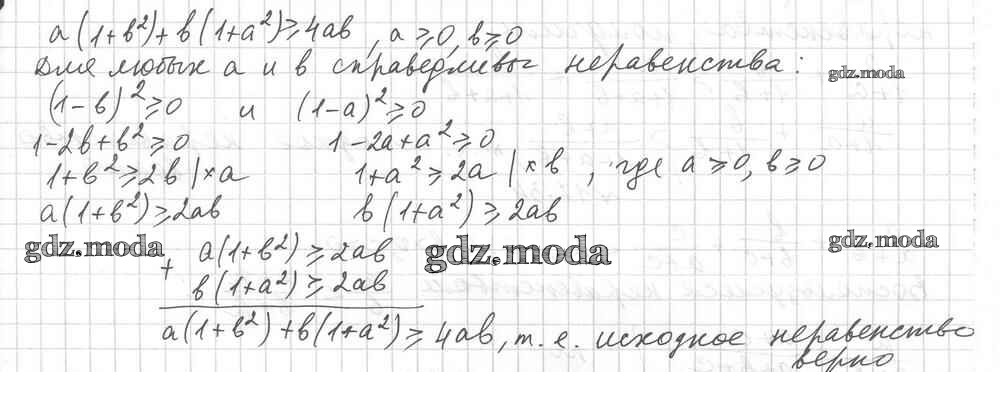 a(1+b²)+b(1+a²)≥4ab, a≥0, b≥0
Для любых a и b справедливы неравенства:
gdz.moda
(1-b)²≥0 и (1-a)²≥0
1-2b+b²≥0 1-2a+a²≥0
1+b²≥2b |×a 1+a²≥2a |×b, где a≥0, b≥0
a(1+b²)≥2ab b(1+a²)≥2ab
gdz.moda gdz.moda gdz.moda
+ a(1+b²)≥2ab
b(1+a²)≥2ab
a(1+b²)+b(1+a²)≥4ab, т.е. исходное неравенство
верно